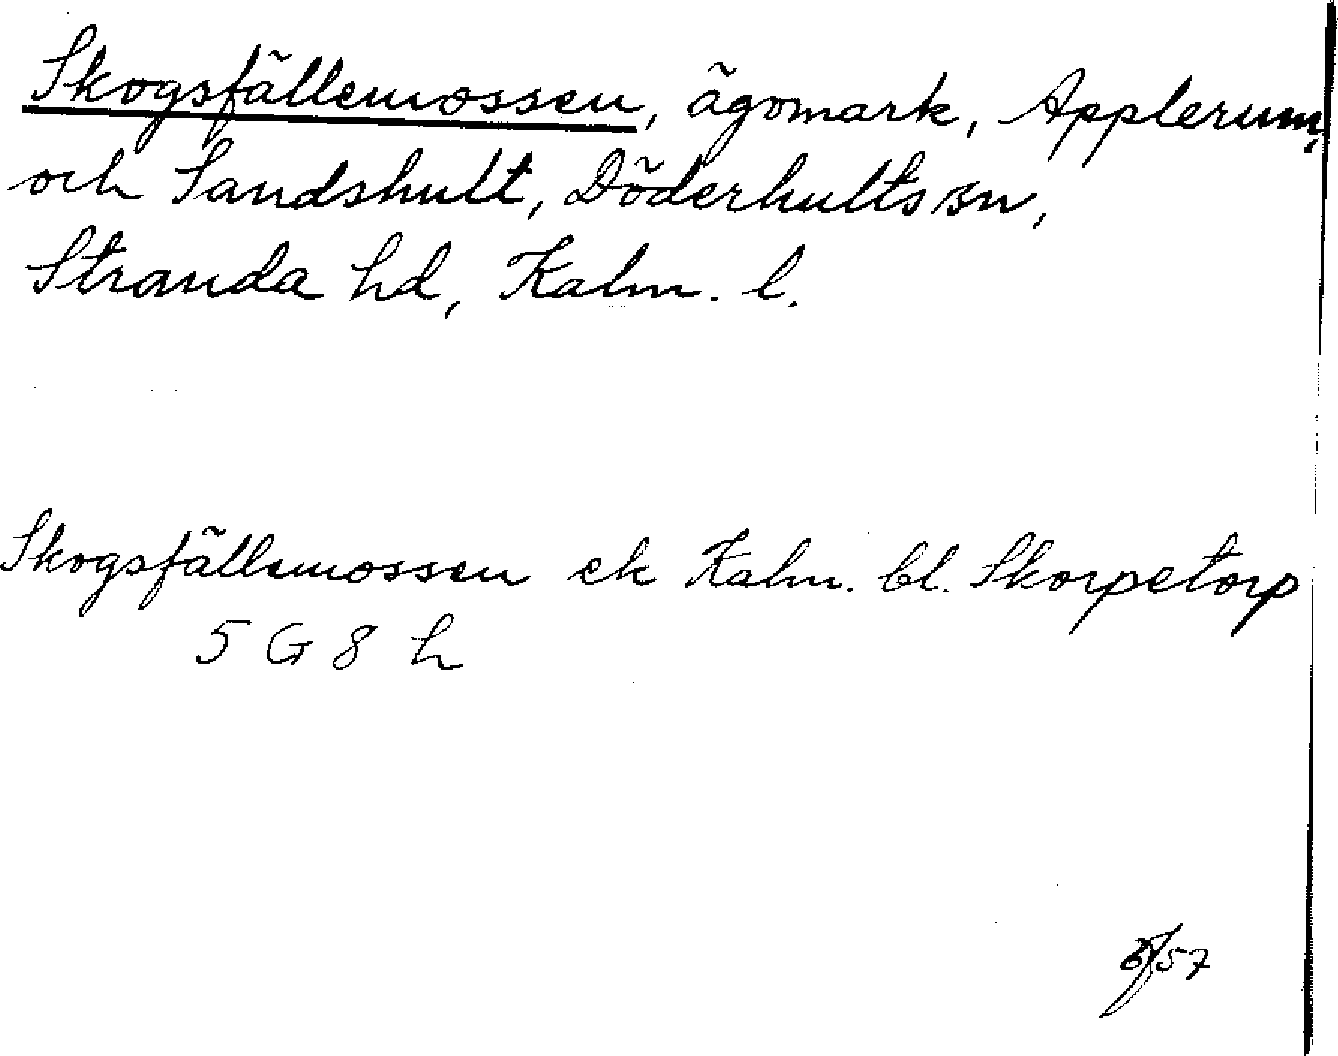 Skogsfällemossen, ägomark, Applerum,
och Sandshult, Döderhults sn,
Stranda hd, Kalm. l.
Skogsfällemossen ek Kalm. bl. Skorpetorp
5 G 8 h
57